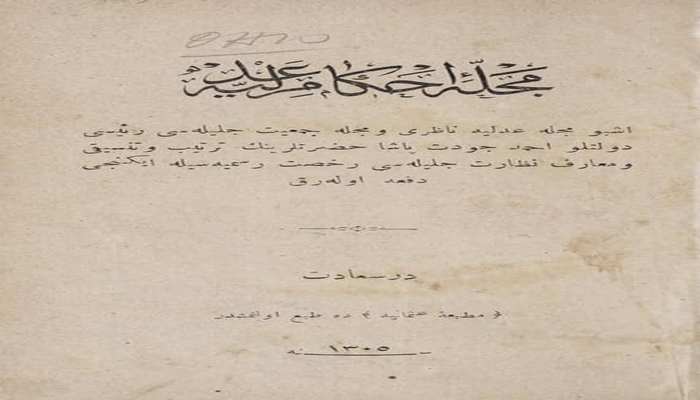 مجلهٔ احكام عدليه
اشبو مجله عدليه ناظرى و مجله جمعيت جليله‌سى رئيسى
دولتلو احمد جودت پاشا حضرتلرينك ترتيب و تنسيق
و معارف نظارت جليله‌سى رخصت رسميه‌سيله ايكنجى
دفعه اوله‌رق
در سعادت
﴿ مطبعهٔ عثمانيه ﴾ ده طبع اولنمشدر
سنه ١٣٠٥